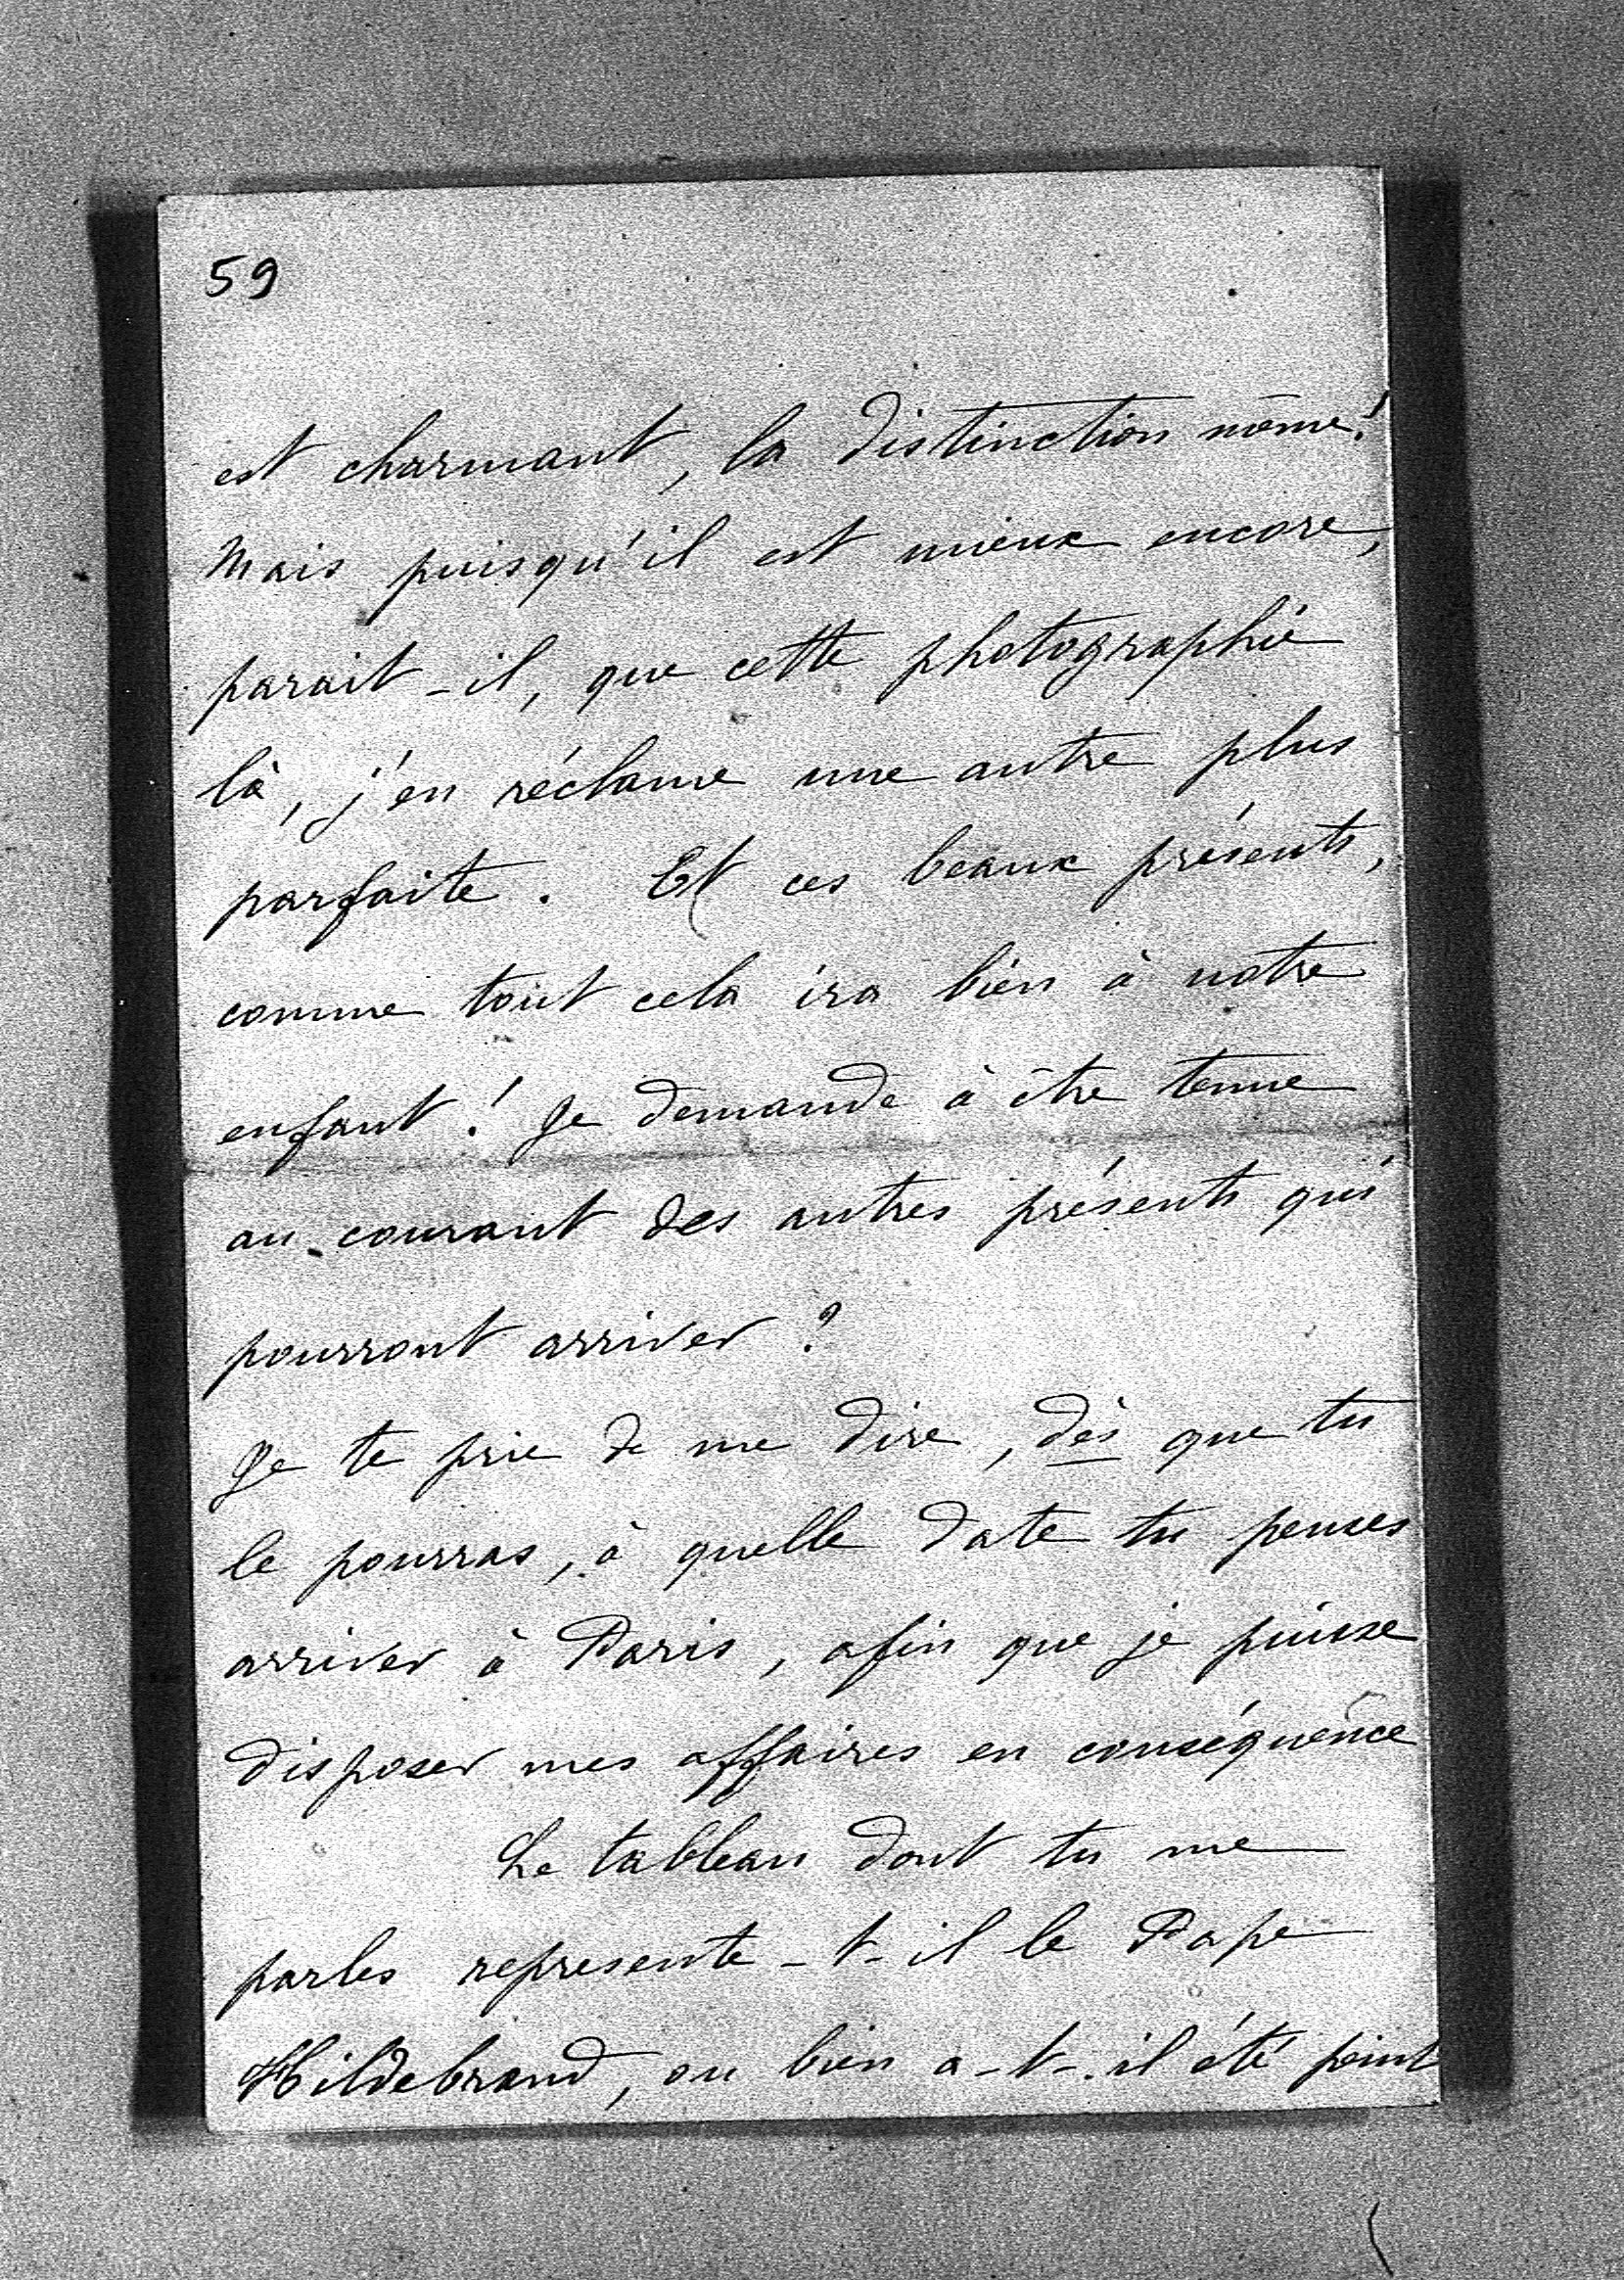 59
est charmant, la distinction même!
Mais puisqu'il est mieux encore,
parait-il, que cette photographie
là, j'en réclame une autre plus
parfaite. Et ces beaux présents,
comme tout cela ira bien à notre
enfant! Je demande à être tenue
au courant des autres présents qui
pourront arriver?
Je te prie de me dire, dès que tu
le pourras, à quelle date tu penses
arriver à Paris, afin que je puisse
disposer mes affaires en conséquence
Le tableau dont tu me
parles represente-t-il le Pape
Hildebrand, ou bien a-t-il été peint